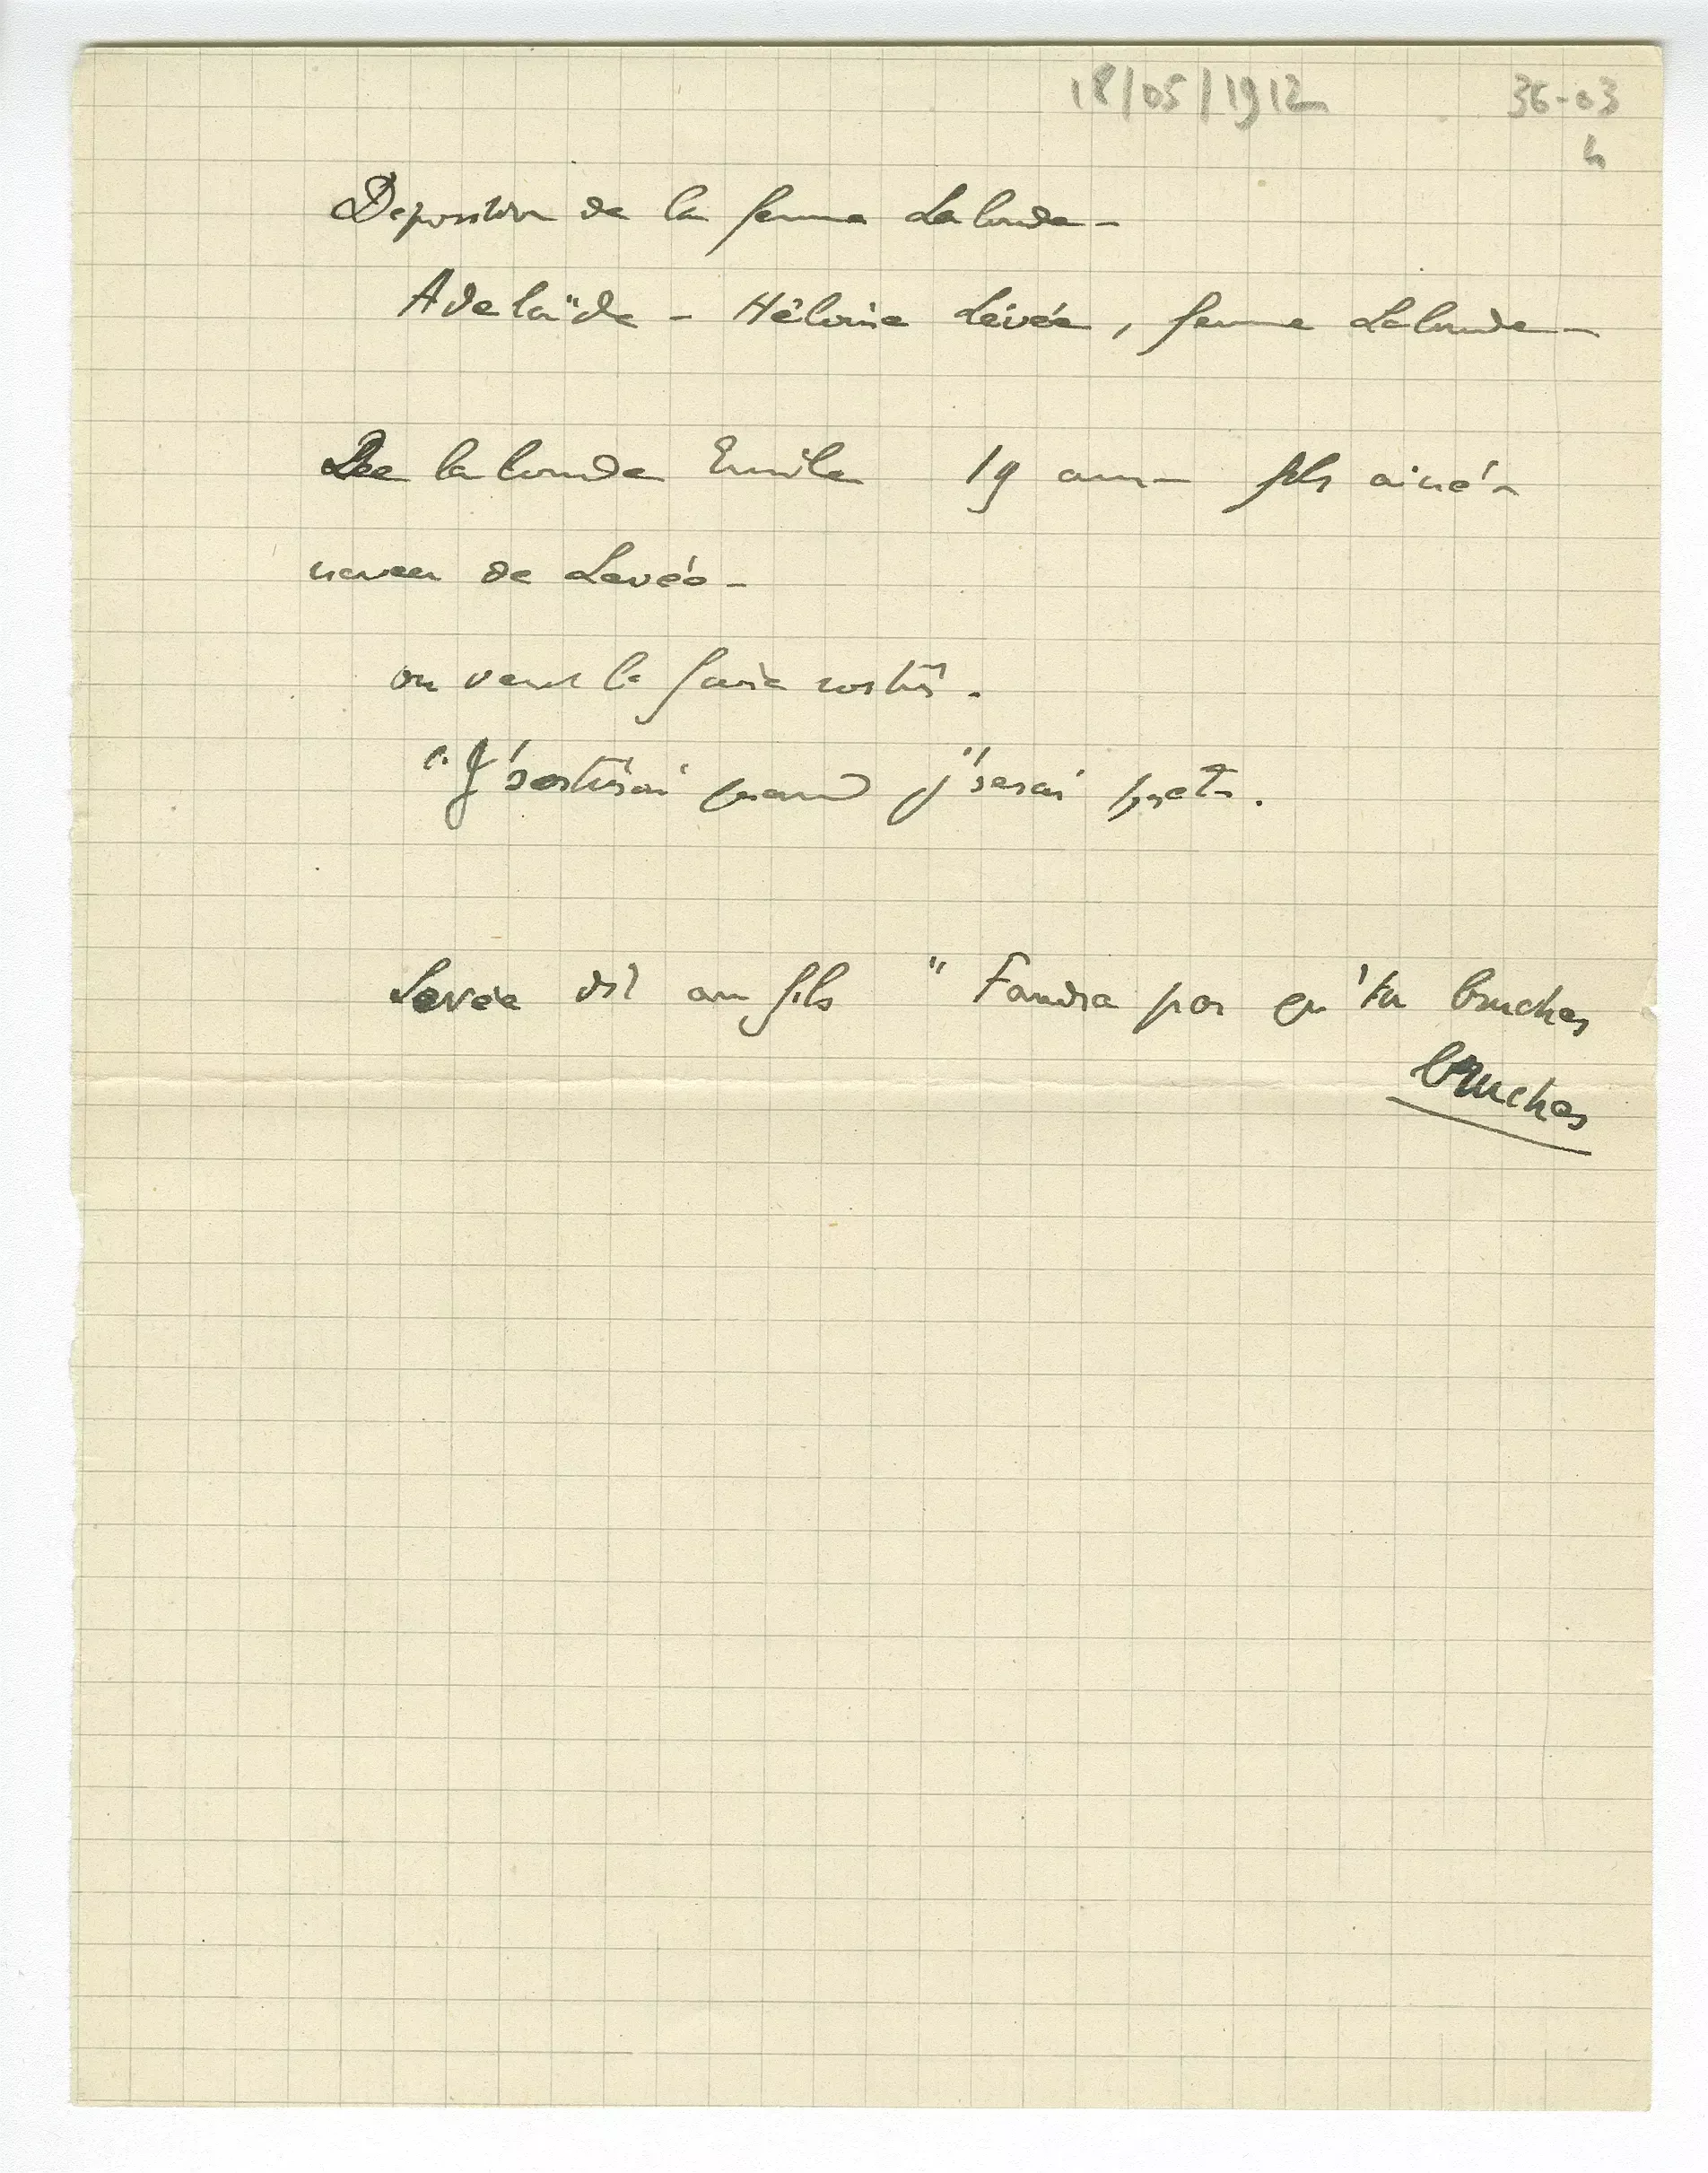 18/05/1912
36-03
4
Deposition de la femme Lalonde -
Adelaïde - Héloïse Levée, femme Lalonde -
De la londe Emile 19 ans - fils ainé -
neveu de Levée -
on veut le faire sortir.
"J'sortirai quand j'serai pret.
Levée dit au fils " Faudra pas qu'tu bruches
bruches